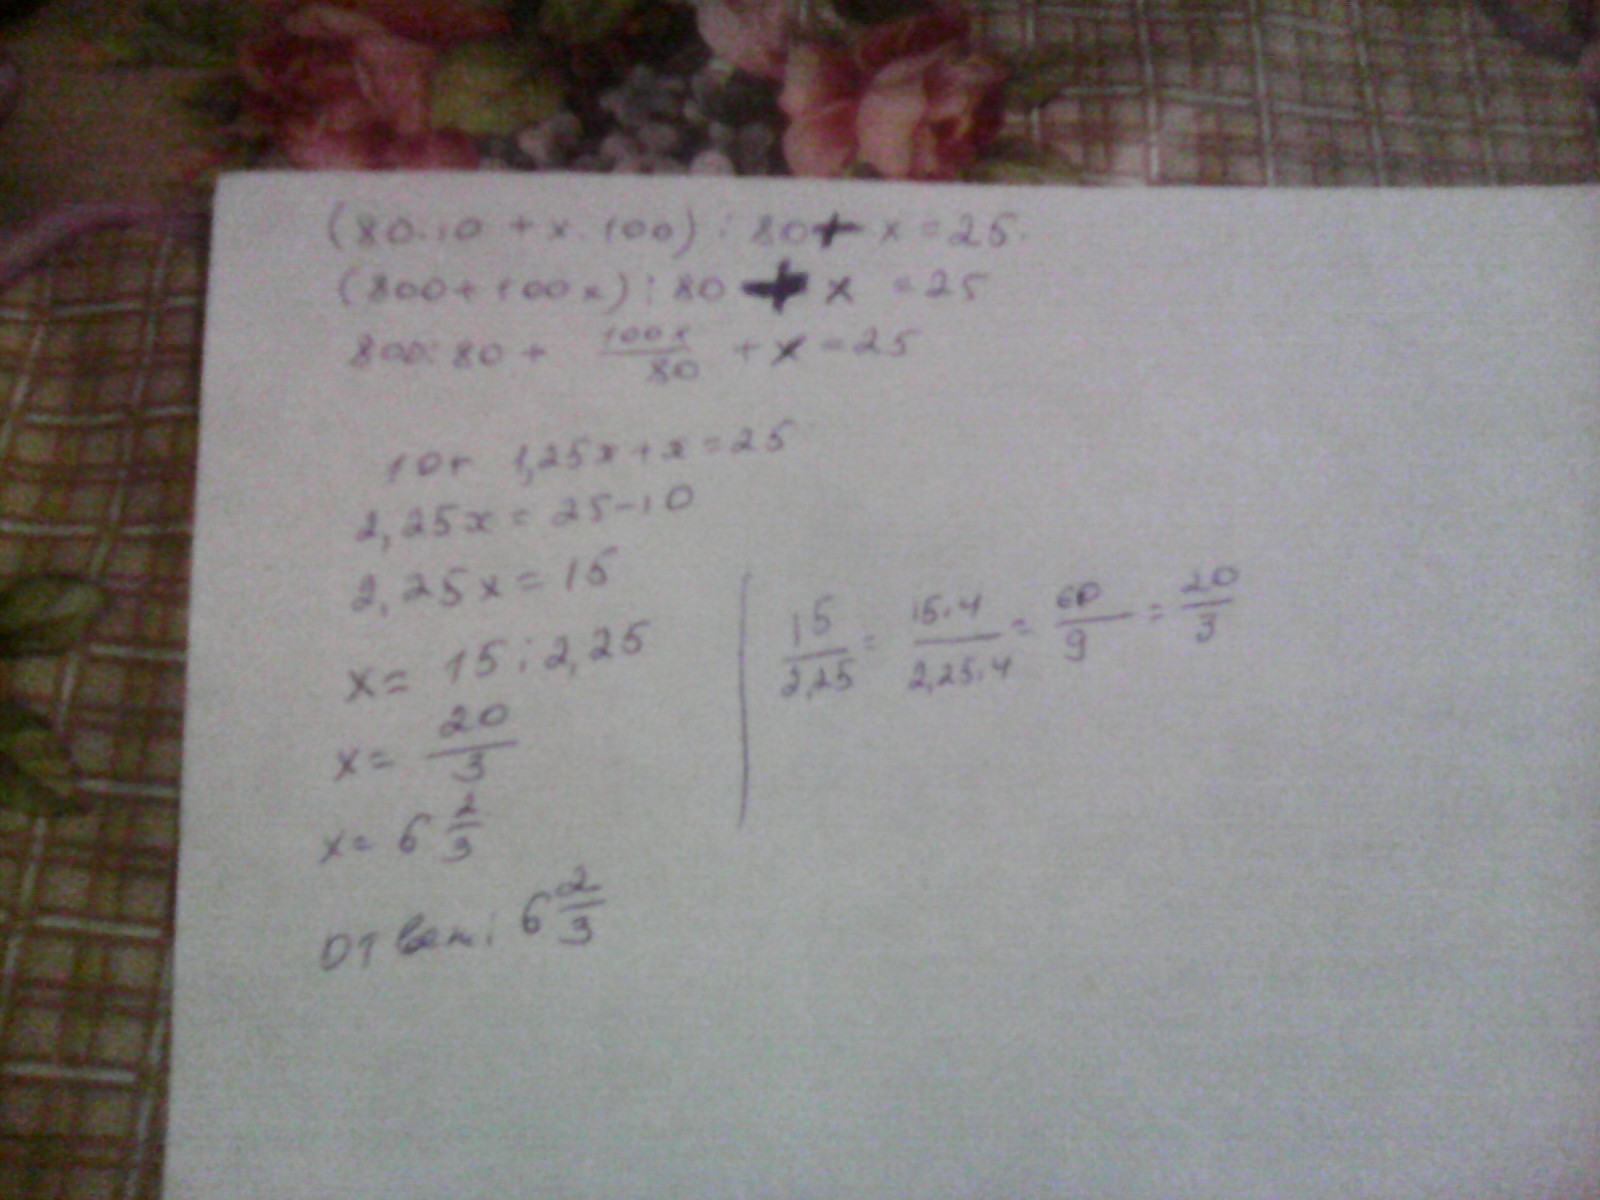 (80·10 + x·100) : 80 + x = 25.
(800 + 100x) : 80 + x = 25
800:80 + 100x/80 + x = 25
10 + 1,25x + x = 25
2,25x = 25 - 10
2,25x = 15
x = 15 : 2,25
x = 20/3
x = 6 2/3
Ответ: 6 2/3
15/2,25 = 15·4/2,25·4 = 60/9 = 20/3